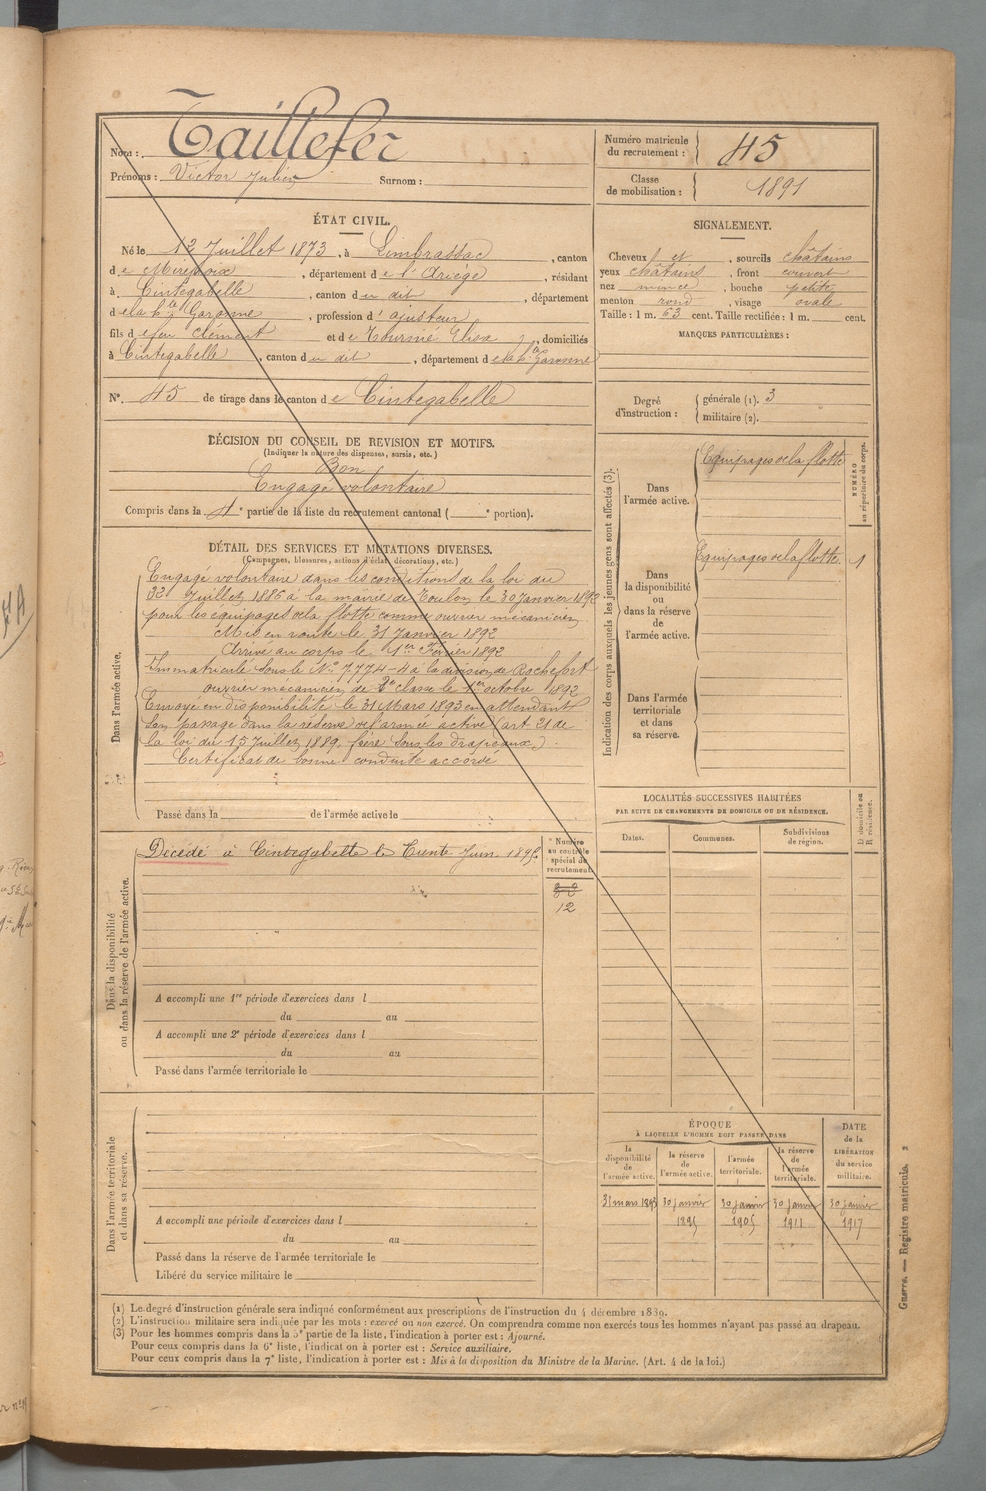 Nom : Taillefer
Prénoms : Victor Julien Surnom :
Numéro matricule du recrutement : 45
Classe de mobilisation : 1891
ÉTAT CIVIL.
Né le 12 Juillet 1873, à Limbrassac, canton
de Mirepoix, département de l'Ariège, résidant
à Cintegabelle, canton du dit, département
de la hte Garonne, profession d'ajusteur
fils de feu Clément et de Tournié Elisa, domiciliés
à Cintegabelle, canton du dit, département de la hte Garonne
N° 45 de tirage dans le canton de Cintegabelle
SIGNALEMENT.
Cheveux et, sourcils châtains
yeux châtains, front couvert
nez mince, bouche petite
menton rond, visage ovale
Taille : 1 m. 63 cent. Taille rectifiée : 1 m. cent.
MARQUES PARTICULIÈRES :
Degré d'instruction : générale (1). 3
militaire (2).
DÉCISION DU CONSEIL DE REVISION ET MOTIFS.
(Indiquer la nature des dispenses, sursis, etc.)
Bon
Engagé volontaire
Compris dans la 4e partie de la liste du recrutement cantonal ( e portion).
DÉTAIL DES SERVICES ET MUTATIONS DIVERSES.
(Campagnes, blessures, actions d'éclat, décorations, etc.)
Dans l'armée active.
Engagé volontaire dans les conditions de la loi du
Juillet à la mairie de Toulon le 30 Janvier 1892
pour les équipages de la flotte comme ouvrier mécanicien
Mis en route le 31 Janvier 1892
Arrivé au corps le 1er Février 1892
Immatriculé sous le No 7,774-4 à la division de Rochefort
ouvrier mécanicien de 2e classe le 1er octobre 1892
Envoyé en disponibilité le 31 Mars 1893 en attendant
son passage dans la réserve de l'armée active (art 21 de
la loi du 15 Juillet 1889, frère sous les drapeaux).
Certificat de bonne conduite accordé
Passé dans la de l'armée active le
Indication des corps auxquels les jeunes gens sont affectés (3).
NUMÉRO au répertoire du corps.
Dans l'armée active.
Equipages de la flotte
Dans la disponibilité ou dans la réserve de l'armée active.
Equipages de la flotte 1
Dans l'armée territoriale et dans sa réserve.
LOCALITÉS SUCCESSIVES HABITÉES
PAR SUITE DE CHANGEMENTS DE DOMICILE OU DE RÉSIDENCE.
Dates. Communes. Subdivisions de région. D domicile ou R résidence.
Dans la disponibilité ou dans la réserve de l'armée active.
Décédé à Cintegabelle le Trente Juin 1895
Numéro au contrôle spécial du recrutement
12
A accompli une 1re période d'exercices dans l
du au
A accompli une 2e période d'exercices dans l
du au
Passé dans l'armée territoriale le
Dans l'armée territoriale et dans sa réserve.
A accompli une période d'exercices dans l
du au
Passé dans la réserve de l'armée territoriale le
Libéré du service militaire le
ÉPOQUE
À LAQUELLE L'HOMME DOIT PASSER DANS
la disponibilité de l'armée active. la réserve de l'armée active. l'armée territoriale. la réserve de l'armée territoriale. DATE de la LIBÉRATION du service militaire.
31 mars 1893 30 janvier 1895 30 janvier 1905 30 janvier 1911 30 janvier 1917
Guerre. — Registre matricule. 2
(1) Le degré d'instruction générale sera indiqué conformément aux prescriptions de l'instruction du 4 décembre 1889.
(2) L'instruction militaire sera indiquée par les mots : exercé ou non exercé. On comprendra comme non exercés tous les hommes n'ayant pas passé au drapeau.
(3) Pour les hommes compris dans la 5e partie de la liste, l'indication à porter est : Ajourné.
Pour ceux compris dans la 6e liste, l'indication à porter est : Service auxiliaire.
Pour ceux compris dans la 7e liste, l'indication à porter est : Mis à la disposition du Ministre de la Marine. (Art. 4 de la loi.)